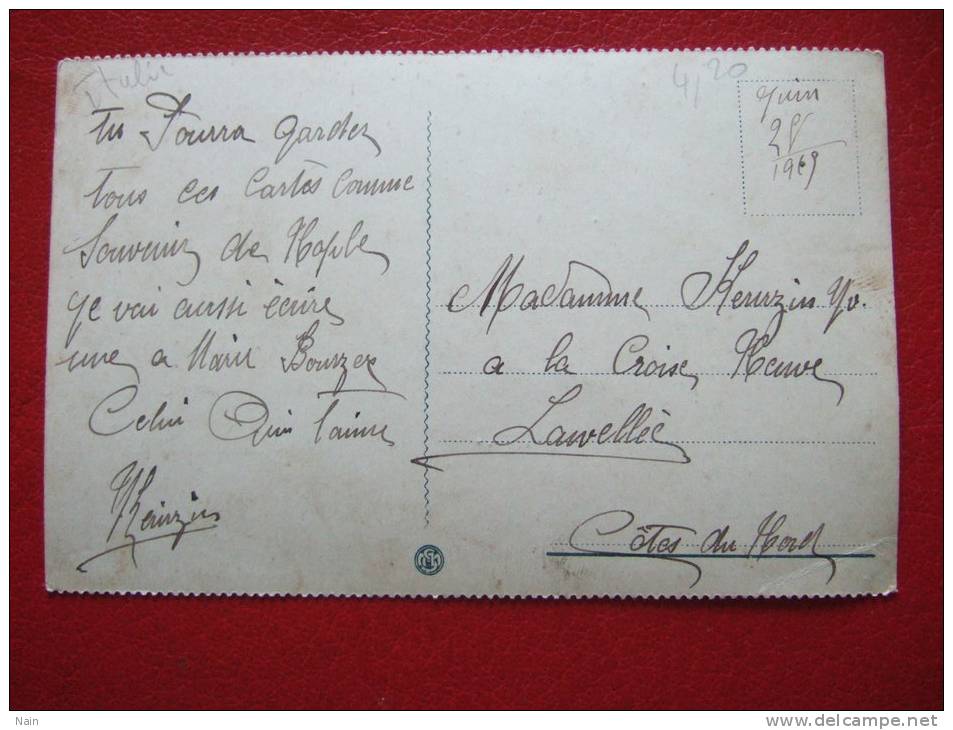 Italie
4,20
Juin
28
1919
tu Pourra garder
tous ces Cartes Comme
Souvenir de Naple
je vai aussi écrire
une a Marie
Celui Qui t'aime
Kerurzin
Madamme Kerurzin Yv.
a la Croise Neuve
Lanvellec
Côtes du Nord
Nain
www.delcampe.net